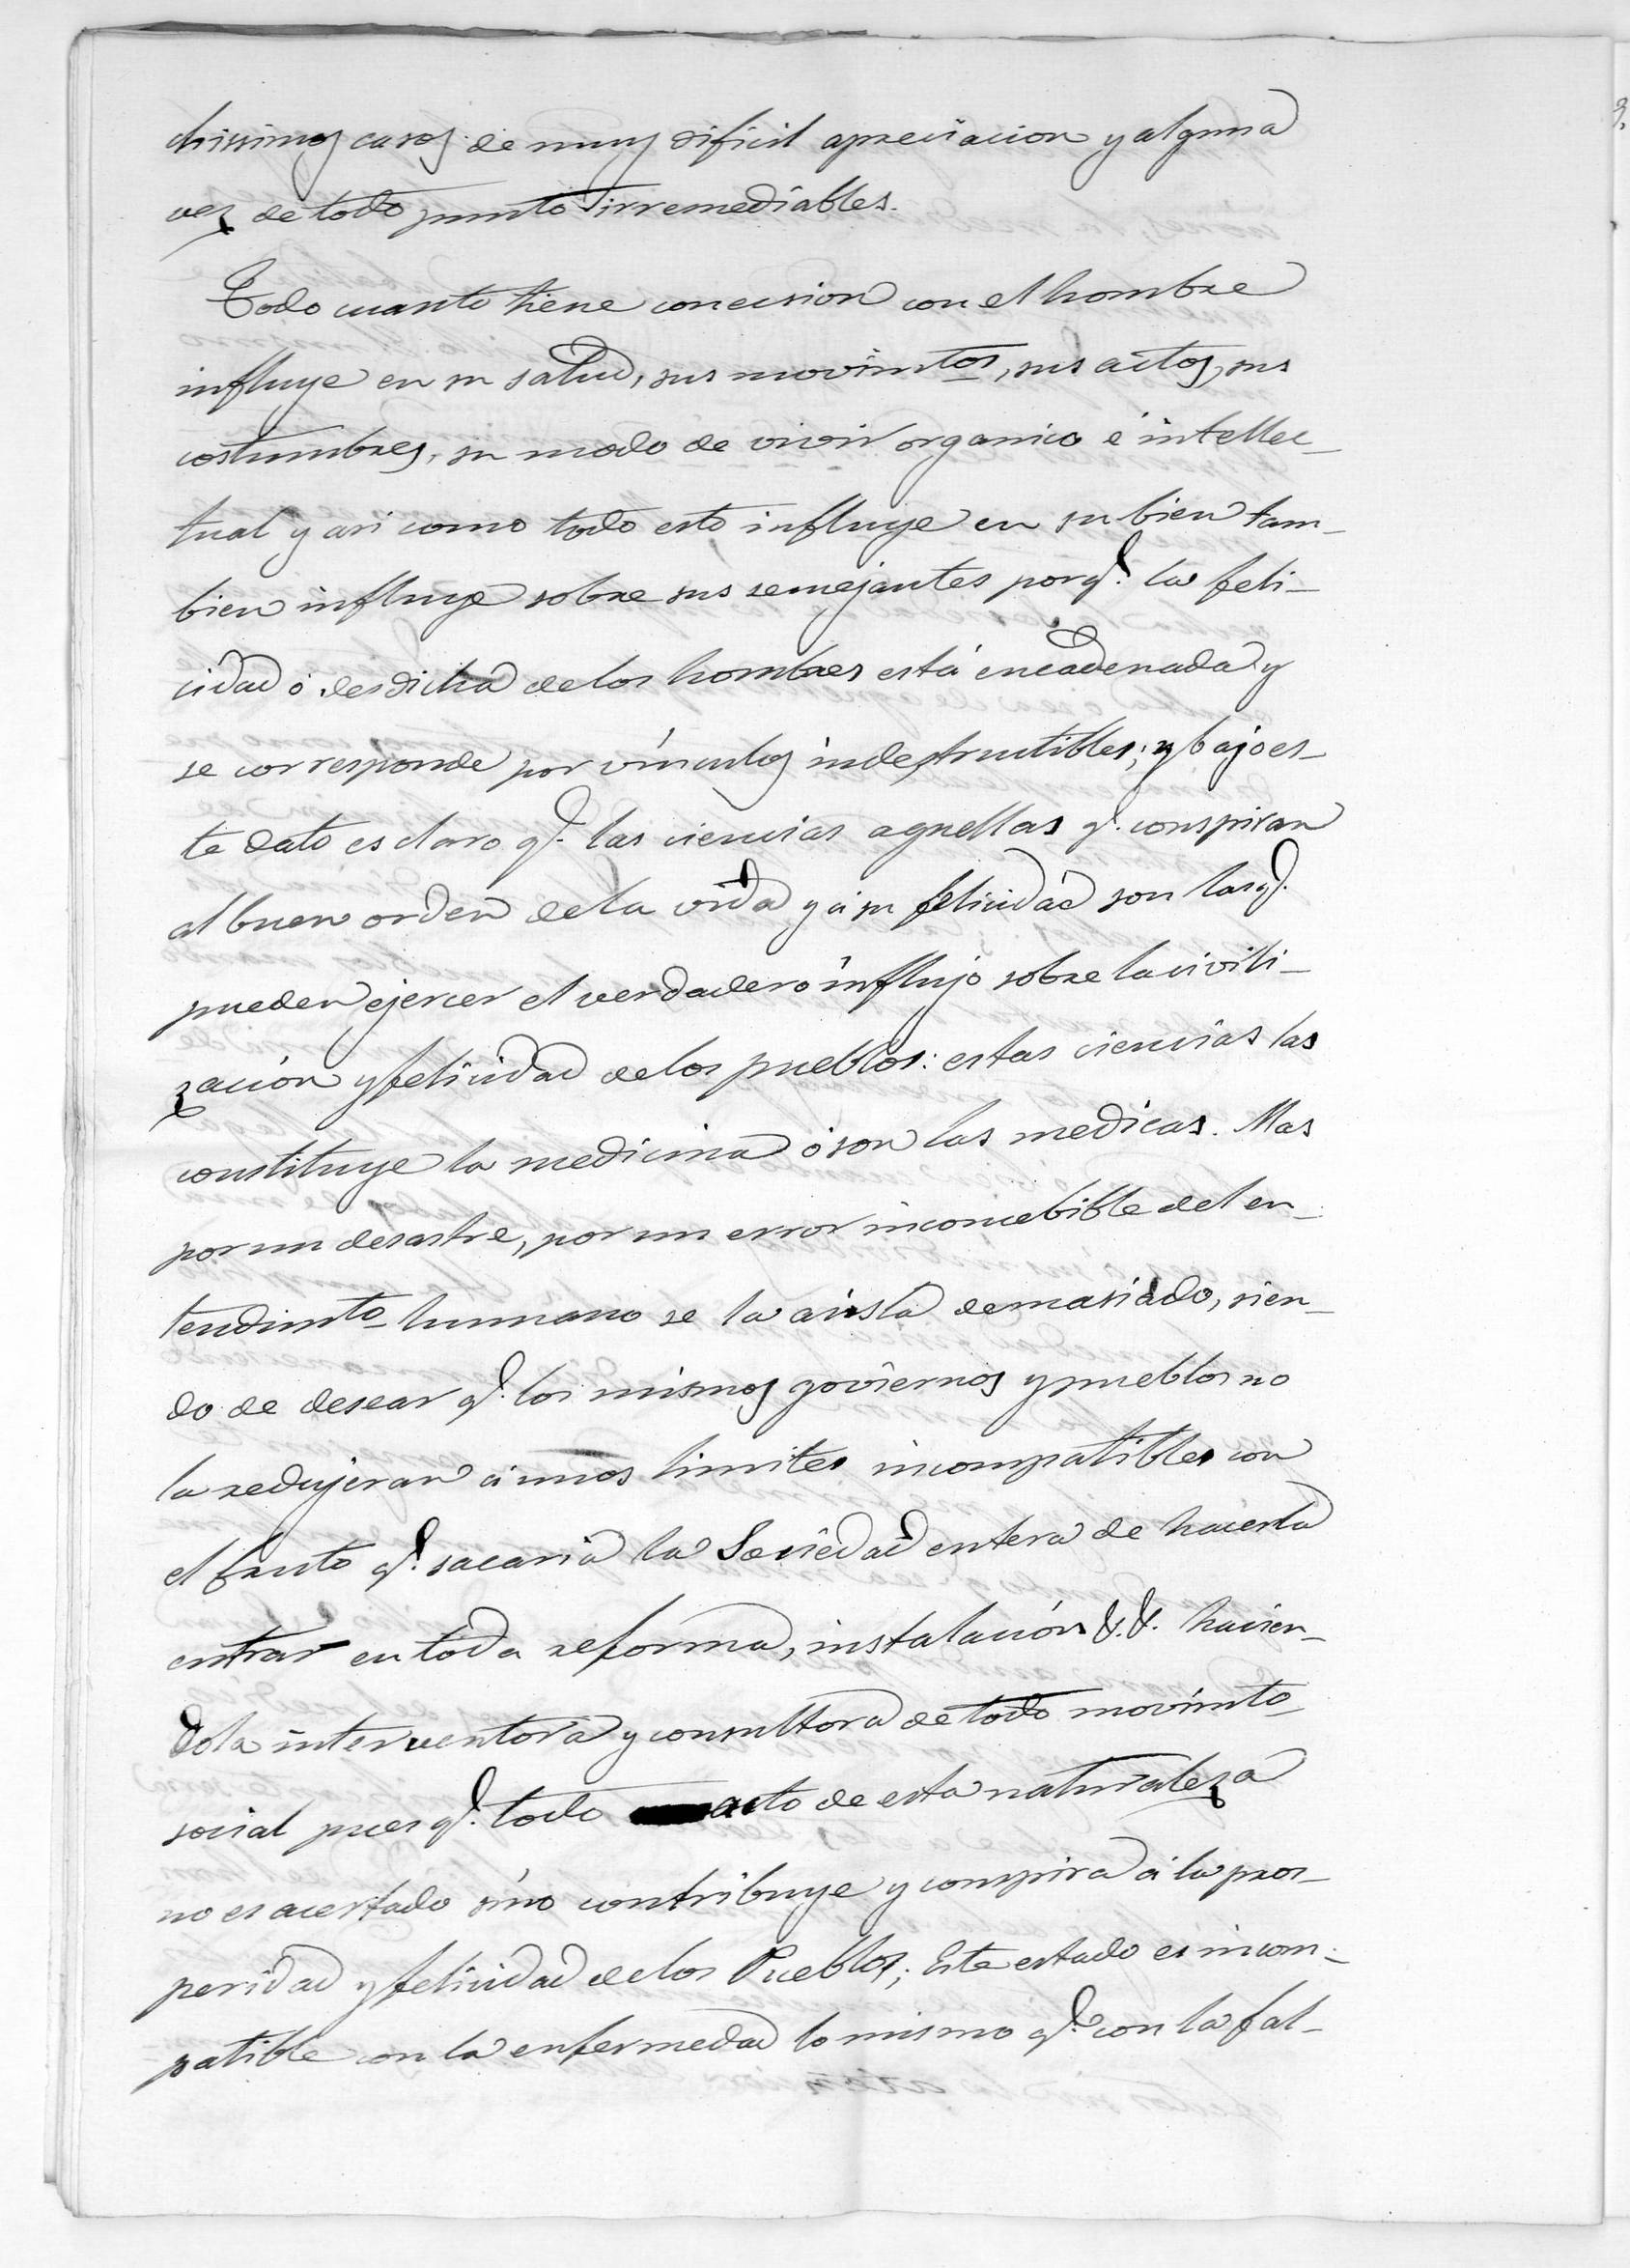 chissimos casos de muy dificil apreciacion y alguna
vez de todo punto irremediables.
Todo cuanto tiene conecsion con el hombre
influye en su salud, sus movimtos, sus actos, sus
costumbres, su modo de vivir organico é intellec-
tual y asi como todo esto influye en su bien tam-
bien influye sobre sus semejantes porq.e la feli-
cidad ó desdicha de los hombres está encadenada y
se corresponde por vínculos indestructibles; y bajo es-
te dato es claro q.e las ciencias aquellas q.e conspiran
al buen orden de la vida y á su felicidad son las q.e
pueden ejercer el verdadero influjo sobre la civili-
zación y felicidad de los pueblos: estas ciencias las
constituye la medicina ó son las medicas. Mas
por un desastre, por un error inconcebible del en-
tendimto humano se la aisla demasiado, sien-
do de desear q.e los mismos goviernos y pueblos no
la redujeran á unos limites incompatibles con
el fruto q.e sacaria la Sociedad entera de hacerla
entrar en toda reforma, instalación &. &. hacien-
dola interventora y consultora de todo movimto
social pues q.e todo acto de esta naturaleza
no es acertado sino contribuye y conspira á la pros-
peridad y felicidad de los Pueblos; Este estado es incom-
patible con la enfermedad lo mismo q.e con la fal-